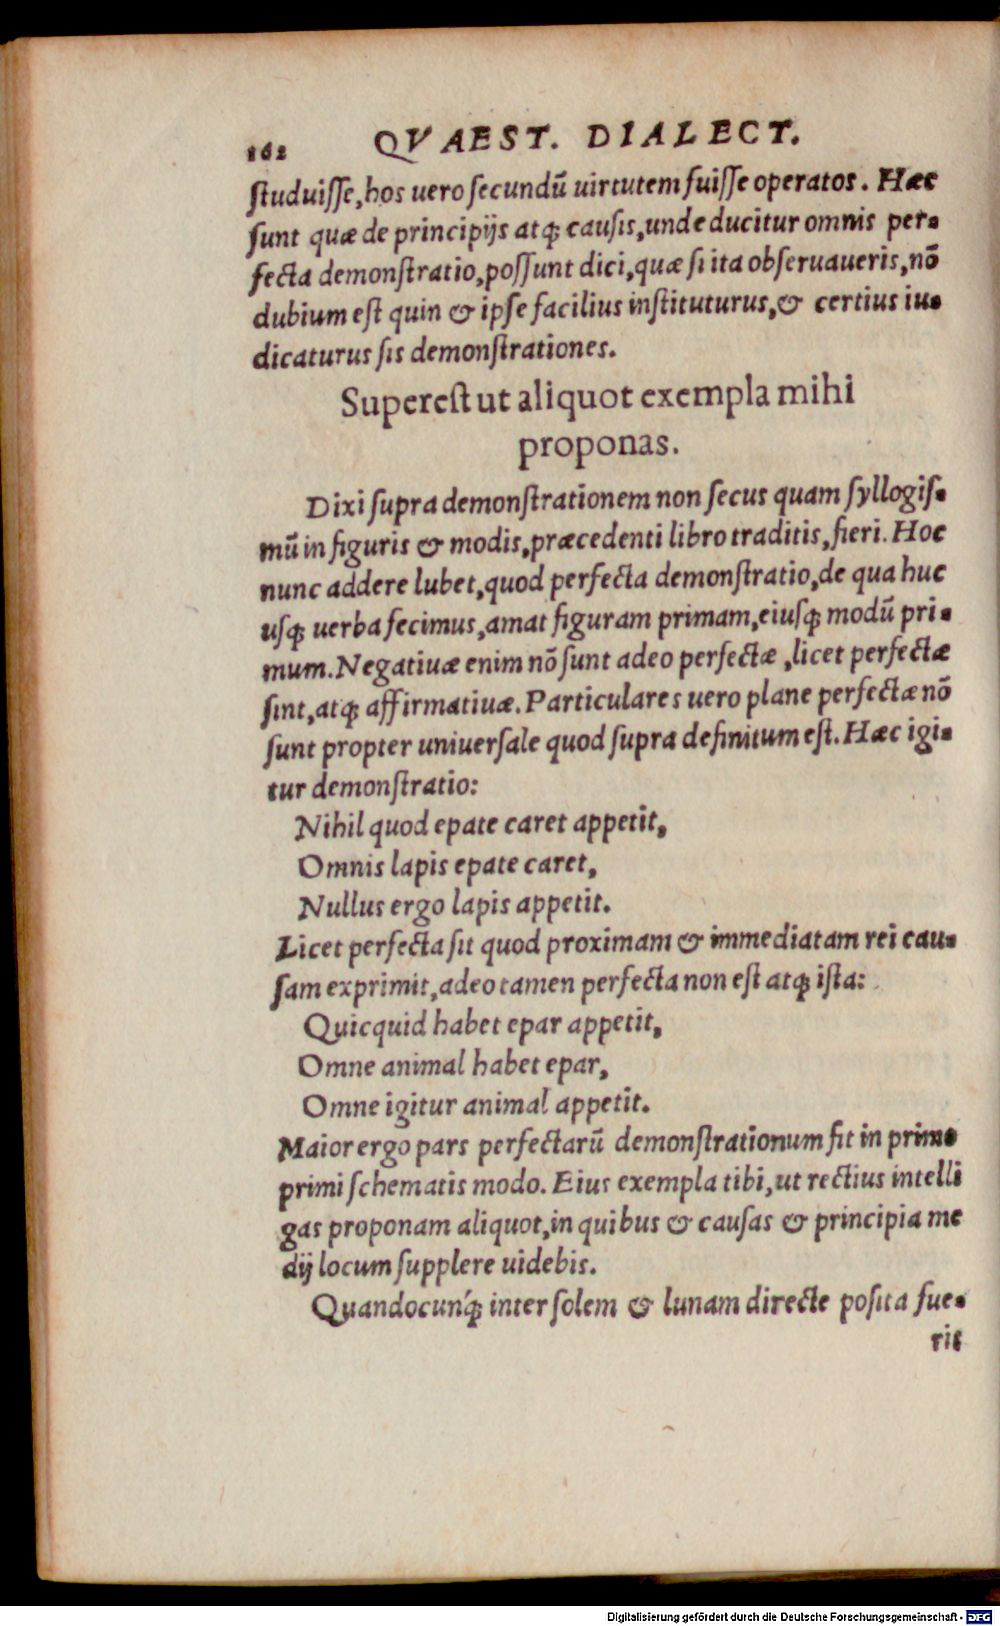 162 QVAEST. DIALECT.
ſtuduiſſe, hos uero ſecundũ uirtutem fuiſſe operatos. Hæc
ſunt quæ de principijs atq; cauſis, unde ducitur omnis per-
fecta demonſtratio, poſſunt dici, quæ ſi ita obſeruaueris, nõ
dubium eſt quin & ipſe facilius inſtituturus, & certius iu-
dicaturus ſis demonſtrationes.
Supereſt ut aliquot exempla mihi
proponas.
Dixi ſupra demonſtrationem non ſecus quam ſyllogiſ-
mũ in figuris & modis, præcedenti libro traditis, fieri. Hoc
nunc addere lubet, quod perfecta demonſtratio, de qua huc
uſq; uerba fecimus, amat figuram primam, eiuſq; modũ pri-
mum. Negatiuæ enim nõ ſunt adeo perfectæ, licet perfectæ
ſint, atq; affirmatiuæ. Particulares uero plane perfectæ nõ
ſunt propter uniuerſale quod ſupra definitum eſt. Hæc igi-
tur demonſtratio:
Nihil quod epate caret appetit,
Omnis lapis epate caret,
Nullus ergo lapis appetit.
Licet perfecta ſit quod proximam & immediatam rei cau-
ſam exprimit, adeo tamen perfecta non eſt atq; iſta:
Quicquid habet epar appetit,
Omne animal habet epar,
Omne igitur animal appetit.
Maior ergo pars perfectarũ demonſtrationum fit in primo
primi ſchematis modo. Eius exempla tibi, ut rectius intelli
gas proponam aliquot, in quibus & cauſas & principia me
dij locum ſupplere uidebis.
Quandocunq́; inter ſolem & lunam directe poſita fue-
rit
Digitalisierung gefördert durch die Deutsche Forschungsgemeinschaft - DFG